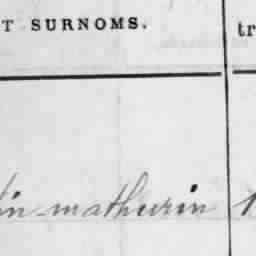 T SURNOMS. tr
in mathurin